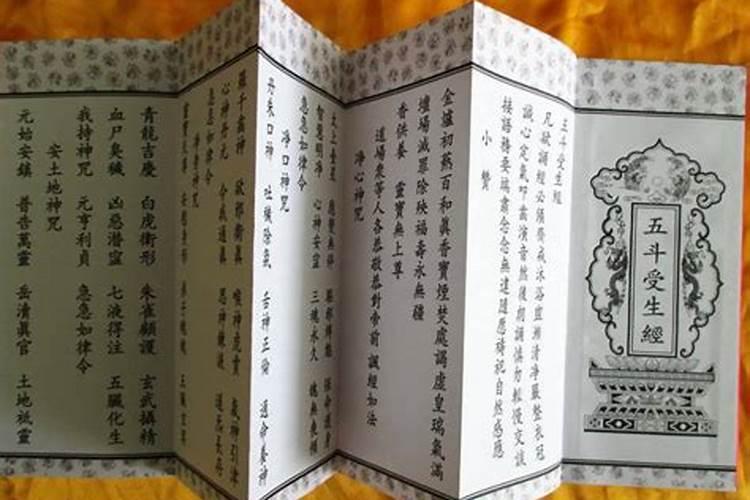 五斗受生經
五斗受生經
凡欲誦經必須齋戒沐浴盥漱清淨嚴整衣冠
誠心定氣叩齒演音然後朗誦慎勿輕慢交談
接語務要端肅念念無違隨應禱祀自然感應
小贊
金爐初爇百和真香寶煙焚處謁虛皇瑞氣滿
壇場滅罪除殃福壽永無疆
香供養 靈寶無上尊
道場衆等人各恭敬恭對帝前 誦經如法
淨心神咒
太上台星 應變無停 驅邪縛魅 保命護身
智慧明淨 心神安寧 三魂永久 魄無喪傾
急急如律令
淨口神咒
丹朱口神 吐穢除氛 舌神正倫 通命養神
羅千齒神 卻邪衛真 喉神虎賁 氣神引津
心神丹元 令我通真 思神鍊液 道氣長存
急急如律令
淨身神咒
靈寶天尊 安慰身形 弟子魂魄 五臟玄冥
青龍吉慶 白虎衛形 朱雀顧護 玄武攝精
血尸臭穢 凶惡潛寧 七液得注 五臟化生
我持神咒 元亨利貞 急急如律令
安土地神咒
元始安鎮 普告萬靈 岳瀆真官 土地祗靈